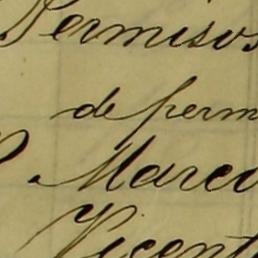 Permisos
de perm
Marco
Vicent